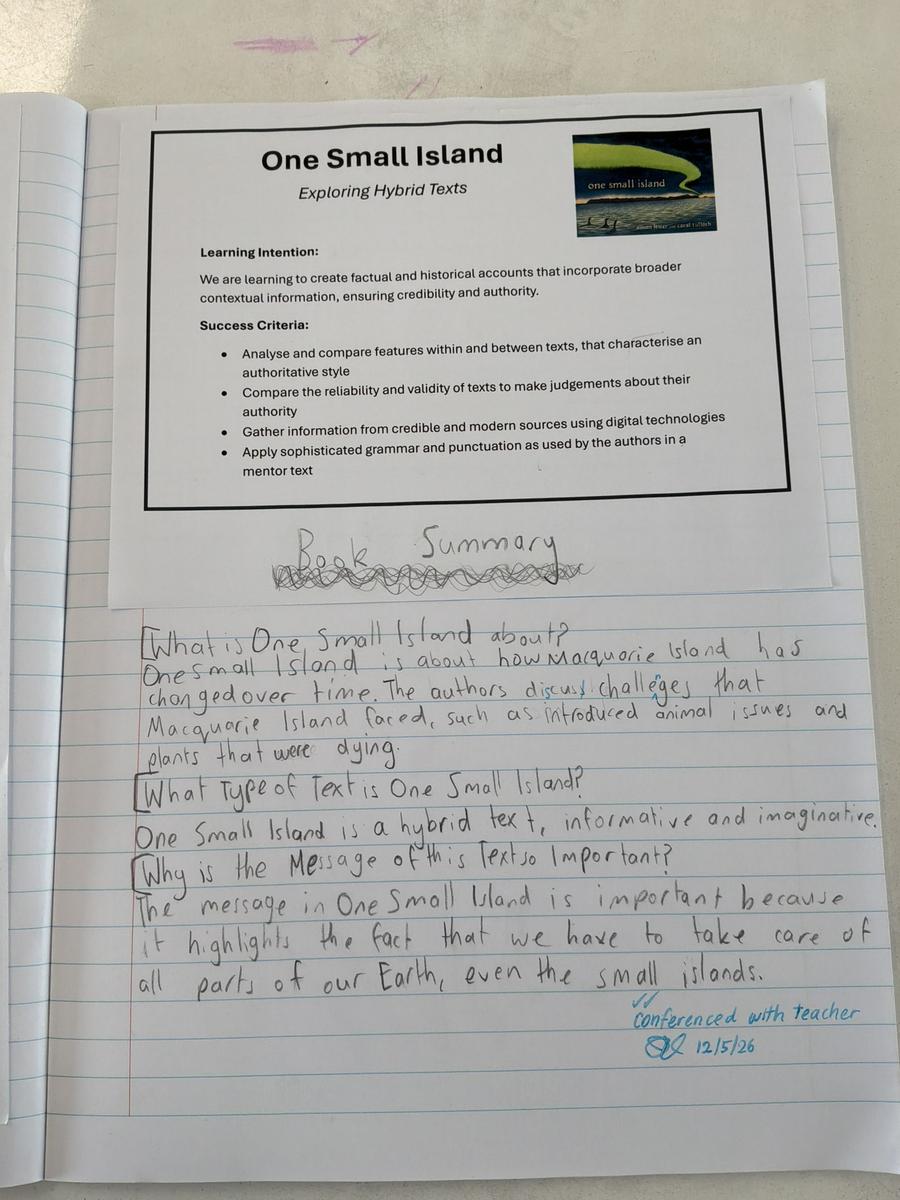 One Small Island
Exploring Hybrid Texts
one small island
alison lester and coral tulloch
Learning Intention:
We are learning to create factual and historical accounts that incorporate broader
contextual information, ensuring credibility and authority.
Success Criteria:
• Analyse and compare features within and between texts, that characterise an
authoritative style
• Compare the reliability and validity of texts to make judgements about their
authority
• Gather information from credible and modern sources using digital technologies
• Apply sophisticated grammar and punctuation as used by the authors in a
mentor text
Book Summary
[What is One Small Island about?
One Small Island is about how Macquarie Island has
changed over time. The authors discuss challenges that
Macquarie Island faced, such as introduced animal issues and
plants that were dying.
[What Type of Text is One Small Island?
One Small Island is a hybrid text, informative and imaginative.
[Why is the Message of this Text so Important?
The message in One Small Island is important because
it highlights the fact that we have to take care of
all parts of our Earth, even the small islands.
✓✓
conferenced with teacher
12/5/26